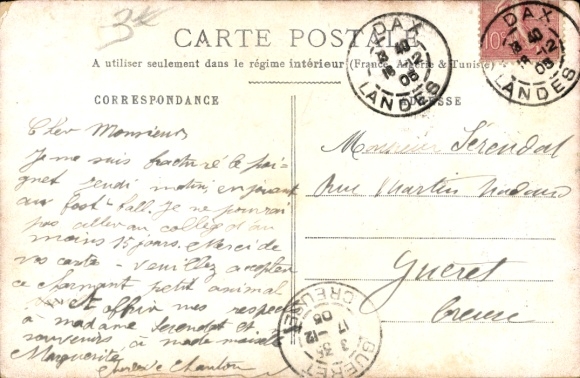 3e
CARTE POSTALE
A utiliser seulement dans le régime intérieur (France, Algérie & Tunisie)
CORRESPONDANCE
ADRESSE
Cher Monsieur
Je me suis fracturé le poi-
gnet jeudi matin, en jouant
au foot-ball. Je ne pourrai
pas aller au collège d'au
moins 15 jours. Merci de
vos carte - veuillez accepter
ce charmant petit animal
et offrir mes respects
à madame Serendat et
souvenirs à mademoiselle
Marguerite
Chanton
Monsieur Sérendat
Rue Martin Nadaud
Guéret
Creuse
DAX
LANDES
DAX
LANDES
10c
GUERET
CREUSE
3 35
17 -12
05